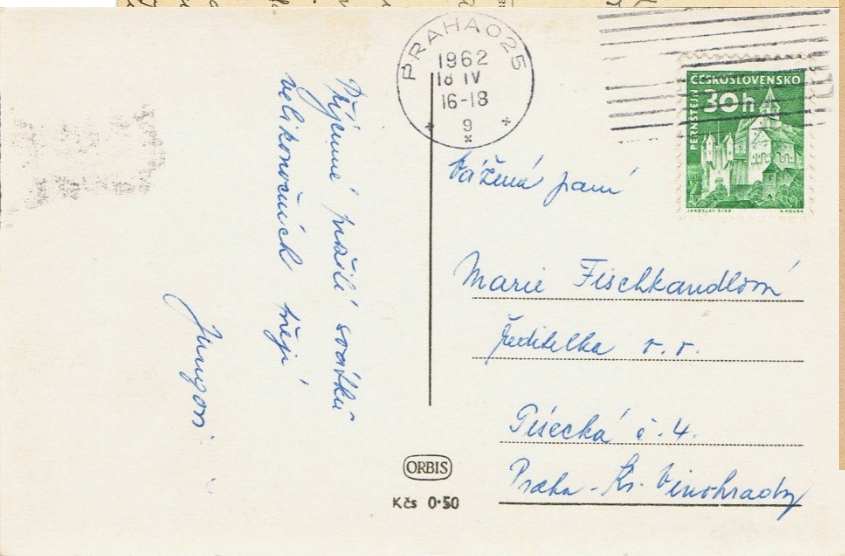 PRAHA 025
1962
18 IV
16-18
9
ČESKOSLOVENSKO
30h
PERNŠTEJN
Příjemné prožití svátků
velikonočních přejí
Jungovi
Vážená paní
Marie Fischkandlová
ředitelka v. v.
Písecká č. 4.
Praha - Kr. Vinohrady
ORBIS
Kčs 0·50